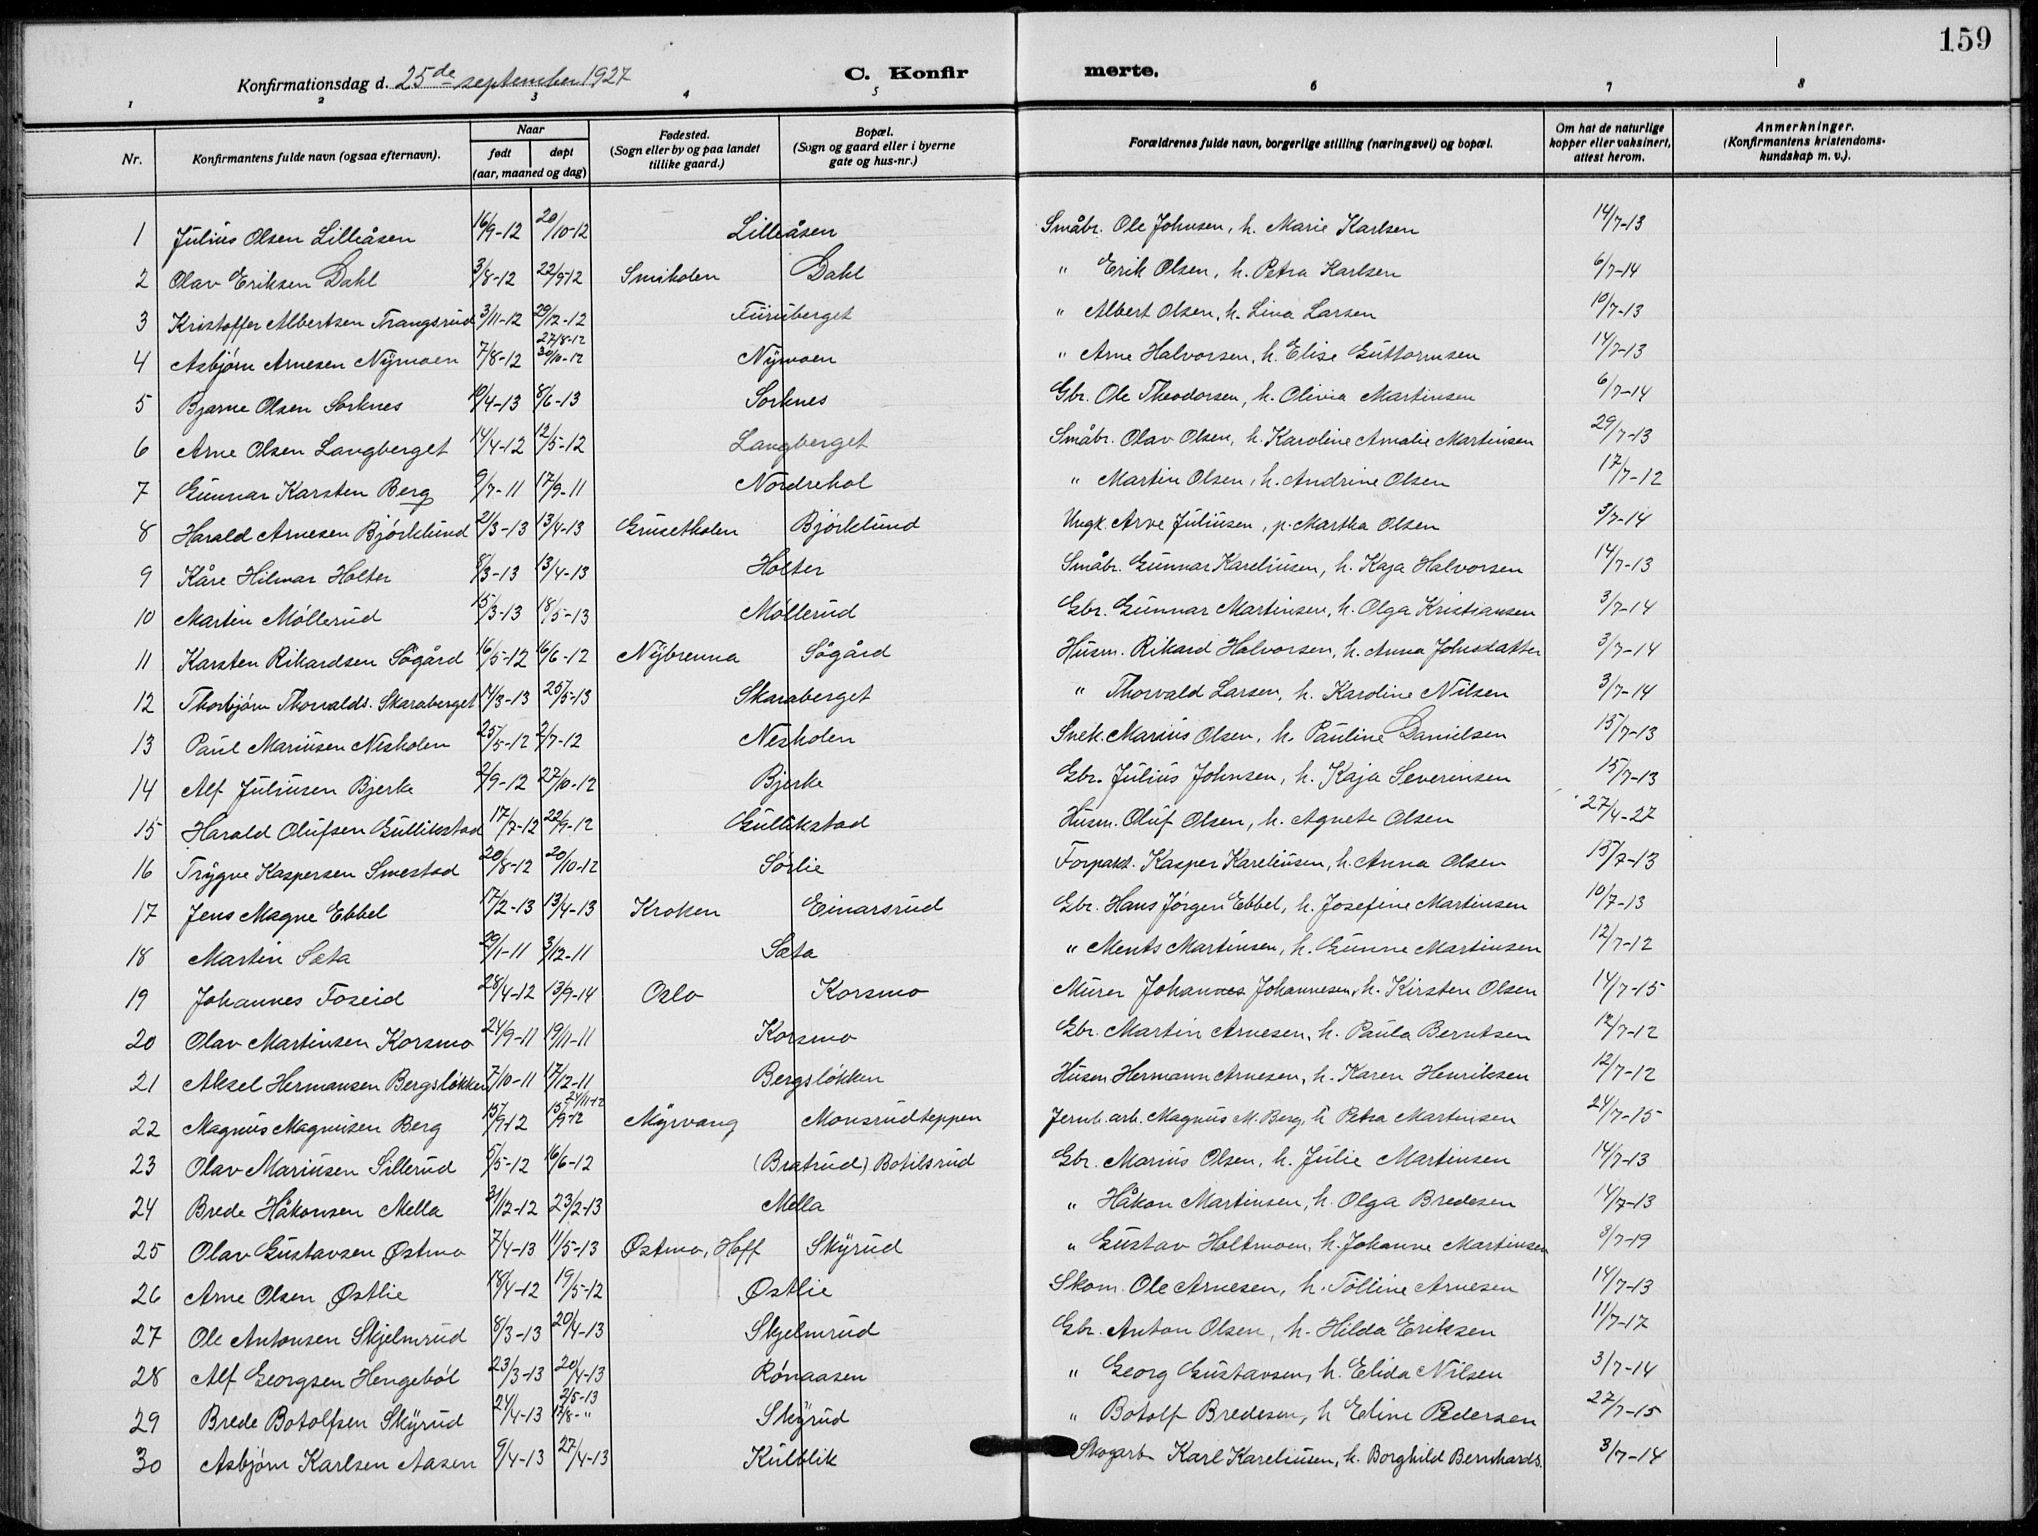 159
Konfirmationsdag d. 25de september 1927 C. Konfirmerte.
1 2 3 4 5 6 7 8
Nr. Konfirmantens fulde navn (ogsaa efternavn). Naar født døpt (aar, maaned og dag) Fødested. (Sogn eller by og paa landet tillike gaard.) Bopæl. (Sogn og gaard eller i byerne gate og hus-nr.) Forældrenes fulde navn, borgerlige stilling (næringsvei) og bopæl. Om hat de naturlige kopper eller vaksinert, attest herom. Anmerkninger. (Konfirmantens kristendomskundskap m. v.).
1 Julius Olsen Lilleåsen 16/9-12 20/10-12 Lilleåsen Småbr. Ole Johnsen, h. Marie Karlsen 14/7-13
2 Olav Eriksen Dahl 3/8-12 22/9-12 Smiholen Dahl " Erik Olsen, h. Petra Karlsen 6/7-14
3 Kristoffer Albertsen Trangsrud 3/11-12 29/12-12 Furuberget " Albert Olsen, h. Lina Larsen 10/7-13
4 Asbjørn Arnesen Nymoen 7/8-12 27/8-12 30/10-12 Nymoen " Arne Halvorsen, h. Elise Guttormsen 14/7-13
5 Bjarne Olsen Sorknes 10/4-13 8/6-13 Sorknes Gbr. Ole Theodorsen, h. Olivia Martinsen 6/7-14
6 Arne Olsen Langberget 14/4-12 12/5-12 Langberget Småbr. Olav Olsen, h. Karoline Amalie Martinsen 29/7-13
7 Gunnar Karsten Berg 9/7-11 17/9-11 Nordrehol " Martin Olsen, h. Andrine Olsen 17/7-12
8 Harald Arnesen Bjørklund 21/3-13 13/4-13 Grusetholen Bjørklund Ungk. Arve Juliusen, p. Martha Olsen 3/7-14
9 Kåre Hilmar Holter 8/3-13 13/4-13 Holter Småbr. Gunnar Kareliusen, h. Kaja Halvorsen 14/7-13
10 Martin Møllerud 15/3-13 18/5-13 Møllerud Gbr. Gunnar Martinsen, h. Olga Kristiansen 3/7-14
11 Karsten Rikardsen Søgård 16/5-12 16/6-12 Nybrenna Søgård Husm. Rikard Halvorsen, h. Anna Johnsdatter 3/7-14
12 Thorbjørn Thorvalds. Skaraberget 14/3-13 25/5-13 Skaraberget " Thorvald Larsen, h. Karoline Nilsen 3/7-14
13 Paul Mariusen Nesholen 25/5-12 2/7-12 Nesholen Snek. Marius Olsen, h. Pauline Danielsen 15/7-13
14 Alf Juliusen Bjerke 2/9-12 27/10-12 Bjerke Gbr. Julius Johnsen, h. Kaja Severinsen 15/7-13
15 Harald Olufsen Gullikstad 17/7-12 22/9-12 Gullikstad Husm. Oluf Olsen, h. Agnete Olsen 27/4-27
16 Trygve Kaspersen Smestad 20/8-12 20/10-12 Sørlie Forpakt. Kasper Kareliusen, h. Anna Olsen 15/7-13
17 Jens Magne Ebbel 17/2-13 13/4-13 Kroken Einarsrud Gbr. Hans Jørgen Ebbel, h. Josefine Martinsen 10/7-13
18 Martin Sæta 29/1-11 3/12-11 Sæta " Ments Martinsen, h. Gunne Martinsen 12/7-12
19 Johannes Foseid 28/4-12 13/9-14 Oslo Korsmo Murer Johannes Johannesen, h. Kirsten Olsen 14/7-15
20 Olav Martinsen Korsmo 24/9-11 19/11-11 Korsmo Gbr. Martin Arnesen, h. Paula Berntsen 12/7-12
21 Aksel Hermansen Bergsløkken 7/10-11 17/12-11 Bergsløkken Husm Hermann Arnesen, h. Karen Henriksen 12/7-12
22 Magnus Magnusen Berg 15/9-12 15/9-12 24/11-12 Myrvang Monsrudteppen Jernb. arb. Magnus M. Berg, h Petra Martinsen 24/7-15
23 Olav Mariusen Sillerud 5/5-12 16/6-12 (Bratrud) Botilsrud Gbr. Marius Olsen, h. Julie Martinsen 14/7-13
24 Brede Håkonsen Mella 31/12-12 23/2-13 Mella " Håkon Martinsen, h. Olga Bredesen 14/7-13
25 Olav Gustavsen Østmo 7/4-13 11/5-13 Østmo, Hoff Skyrud " Gustav Holtmoen, h. Johanne Martinsen 3/7-19
26 Arne Olsen Østlie 18/4-12 19/5-12 Østlie Skom. Ole Arnesen, h. Tolline Arnesen 14/7-13
27 Ole Antonsen Skjelmrud 8/3-13 20/4-13 Skjelmrud Gbr. Anton Olsen, h. Hilda Eriksen 11/7-17
28 Alf Georgsen Hengebøl 23/3-13 20/4-13 Rønaasen " Georg Gustavsen, h. Elida Nilsen 3/7-14
29 Brede Botolfsen Skyrud 24/4-13 2/5-13 17/8-" Skyrud " Botolf Bredesen, h Eline Pedersen 27/7-15
30 Asbjørn Karlsen Aasen 9/4-13 27/4-13 Kulblik Skogarb Karl Kareliusen, h. Borghild Bernhards. 3/7-14